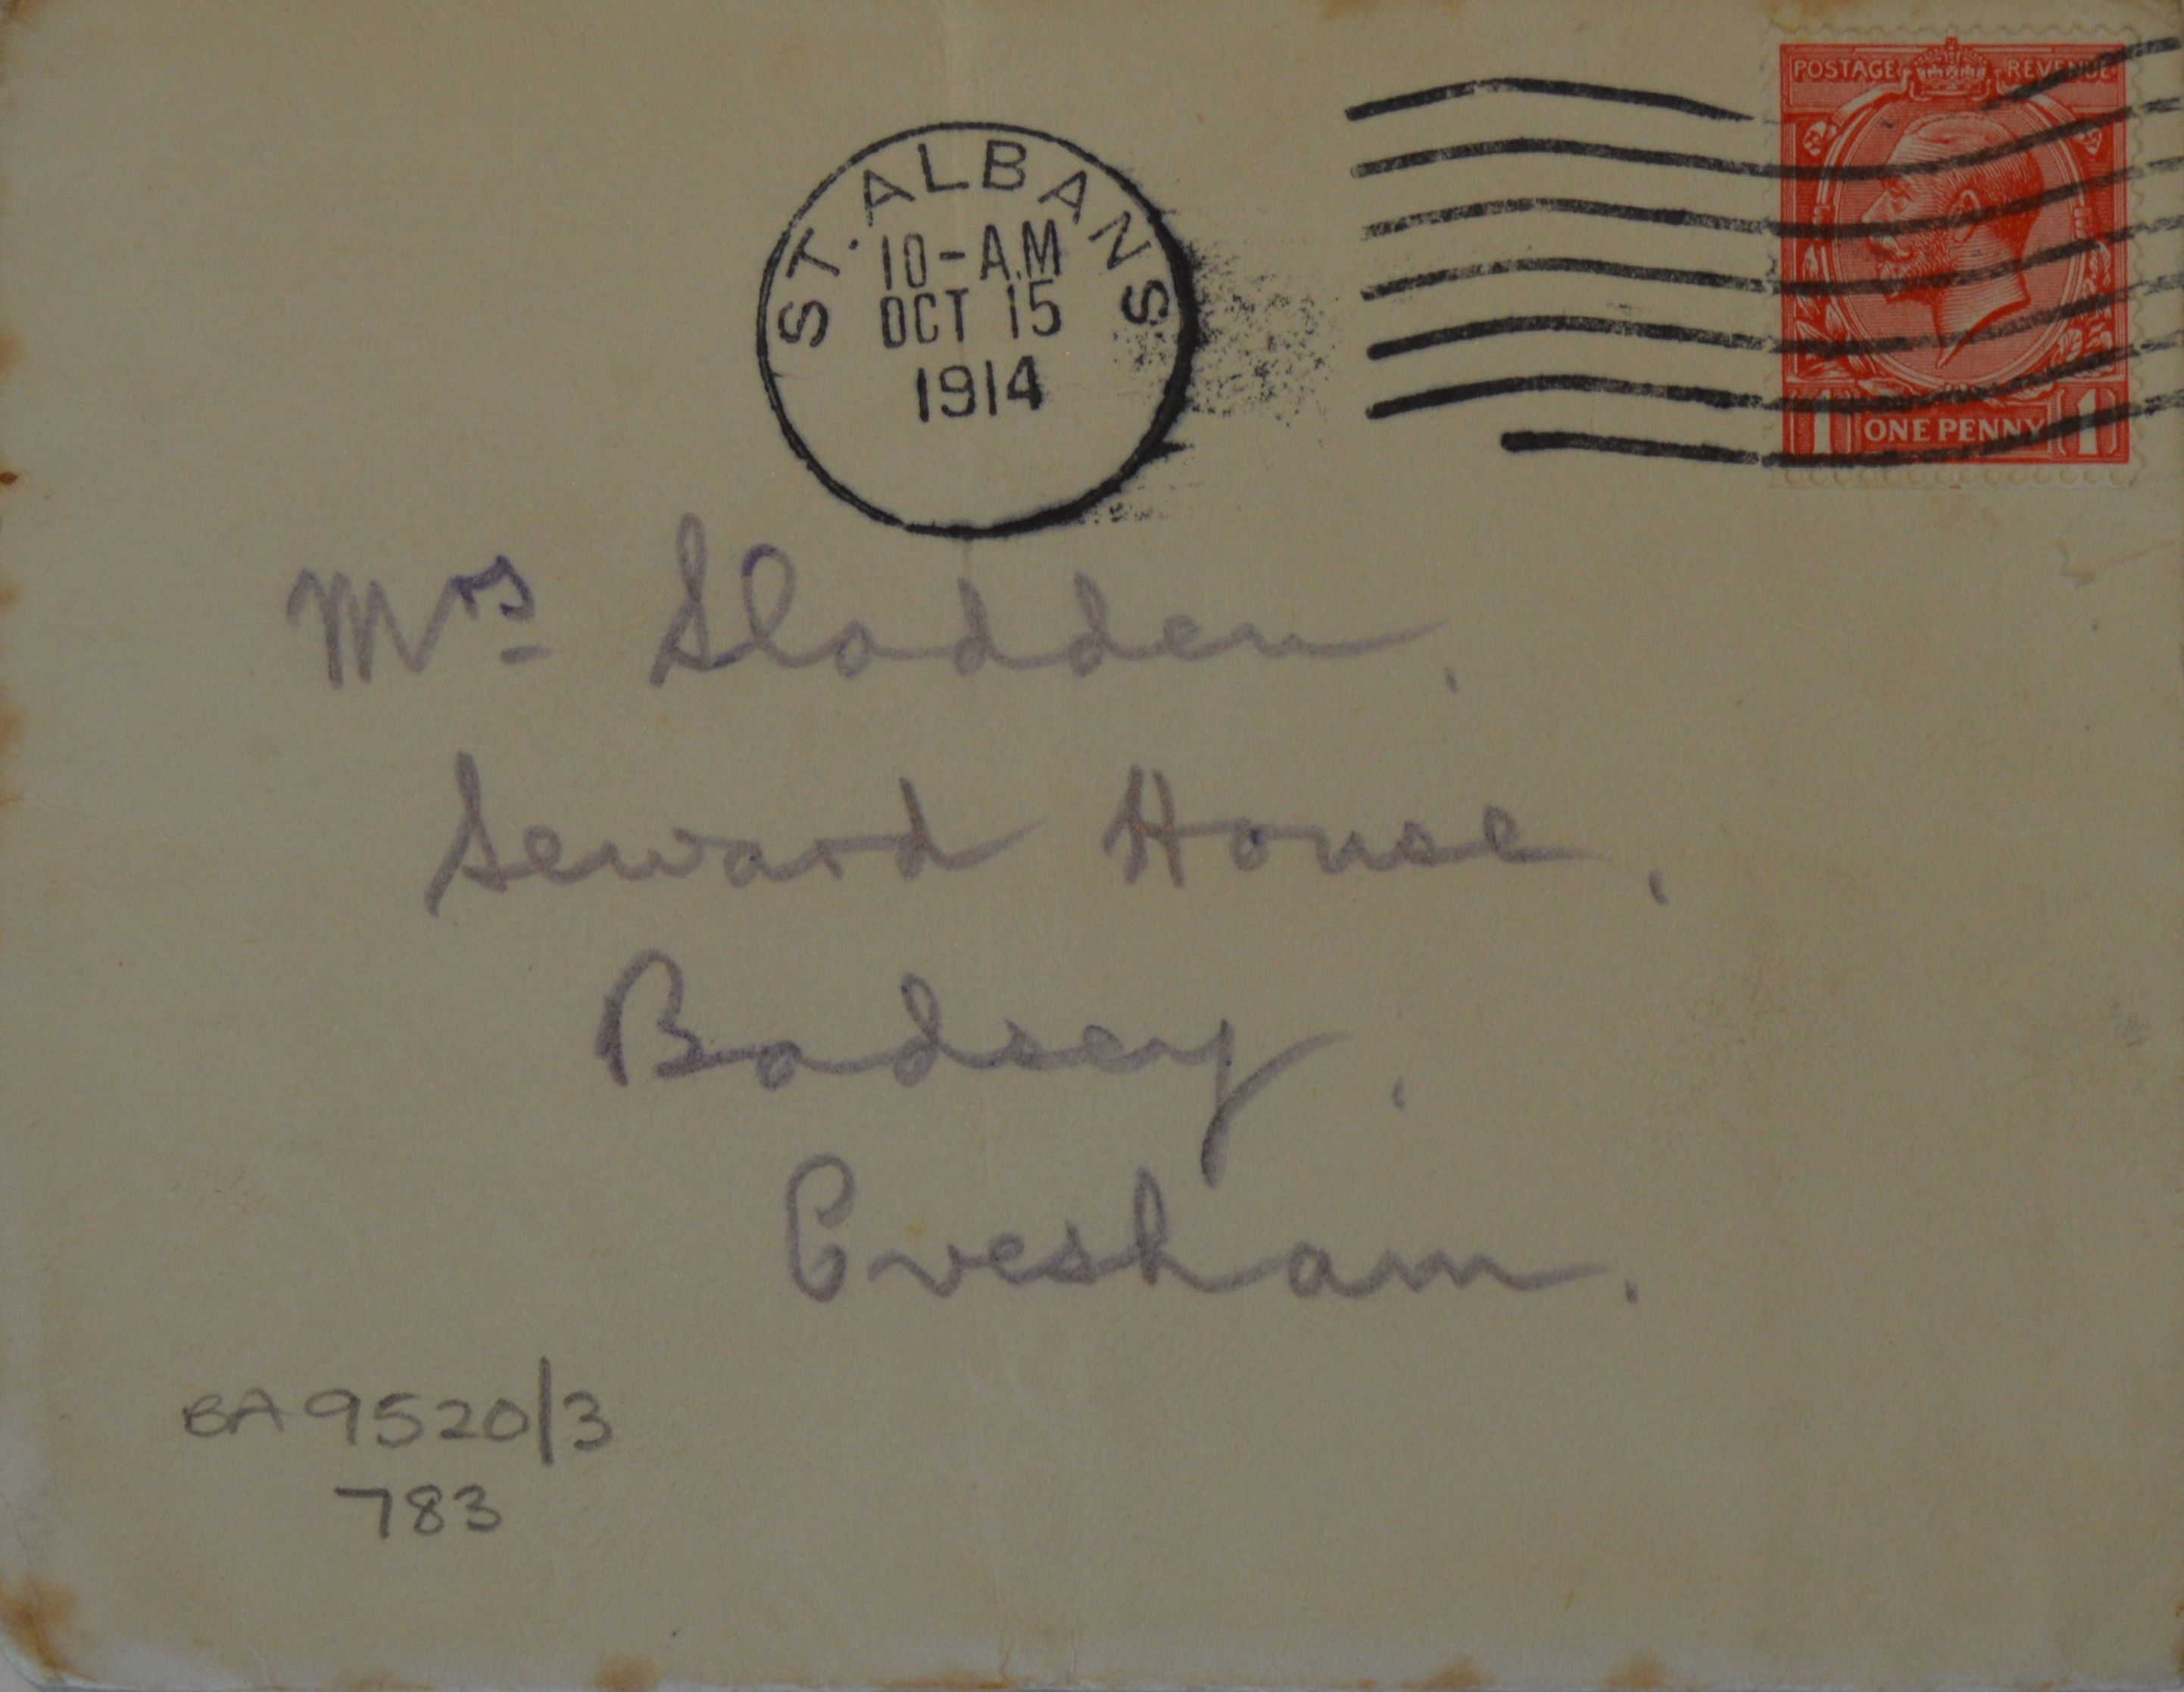 POSTAGE REVENUE
ST. ALBANS
10-A.M
OCT 15
1914
1 ONE PENNY 1
Mrs Sladden,
Seward House,
Badsey,
Evesham.
BA 9520/3
783